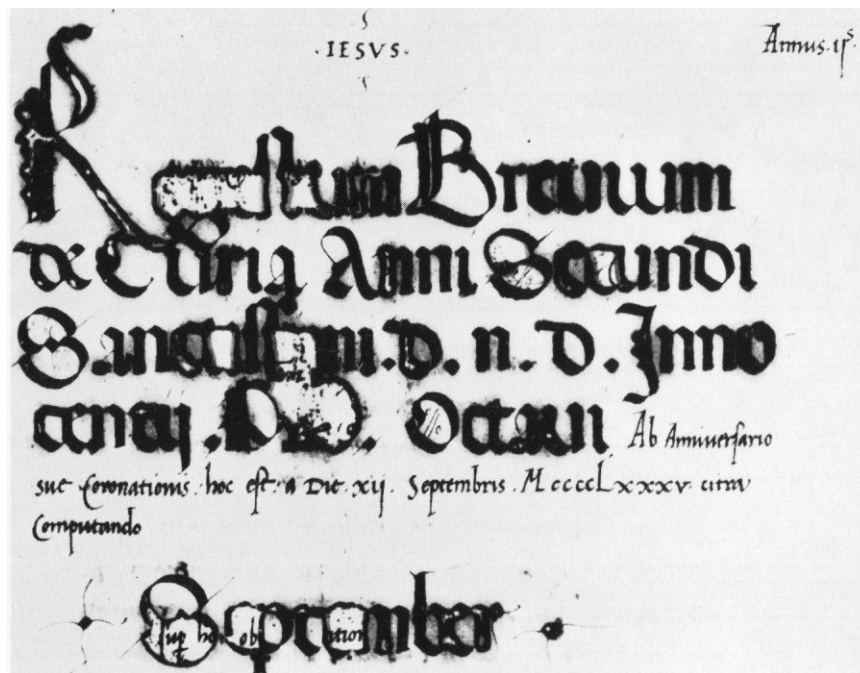 · IESVS · Annus · ij<sup>s</sup> ·
Regestum Breuium
de Curia Anni Secundi
Sanctissimi . D . n . D . Inno
centij . PP . Octaui Ab Anniuersario
sue Coronationis · hoc est · a Die · xij · Septembris · MccccLxxxv · citra
Computando
September